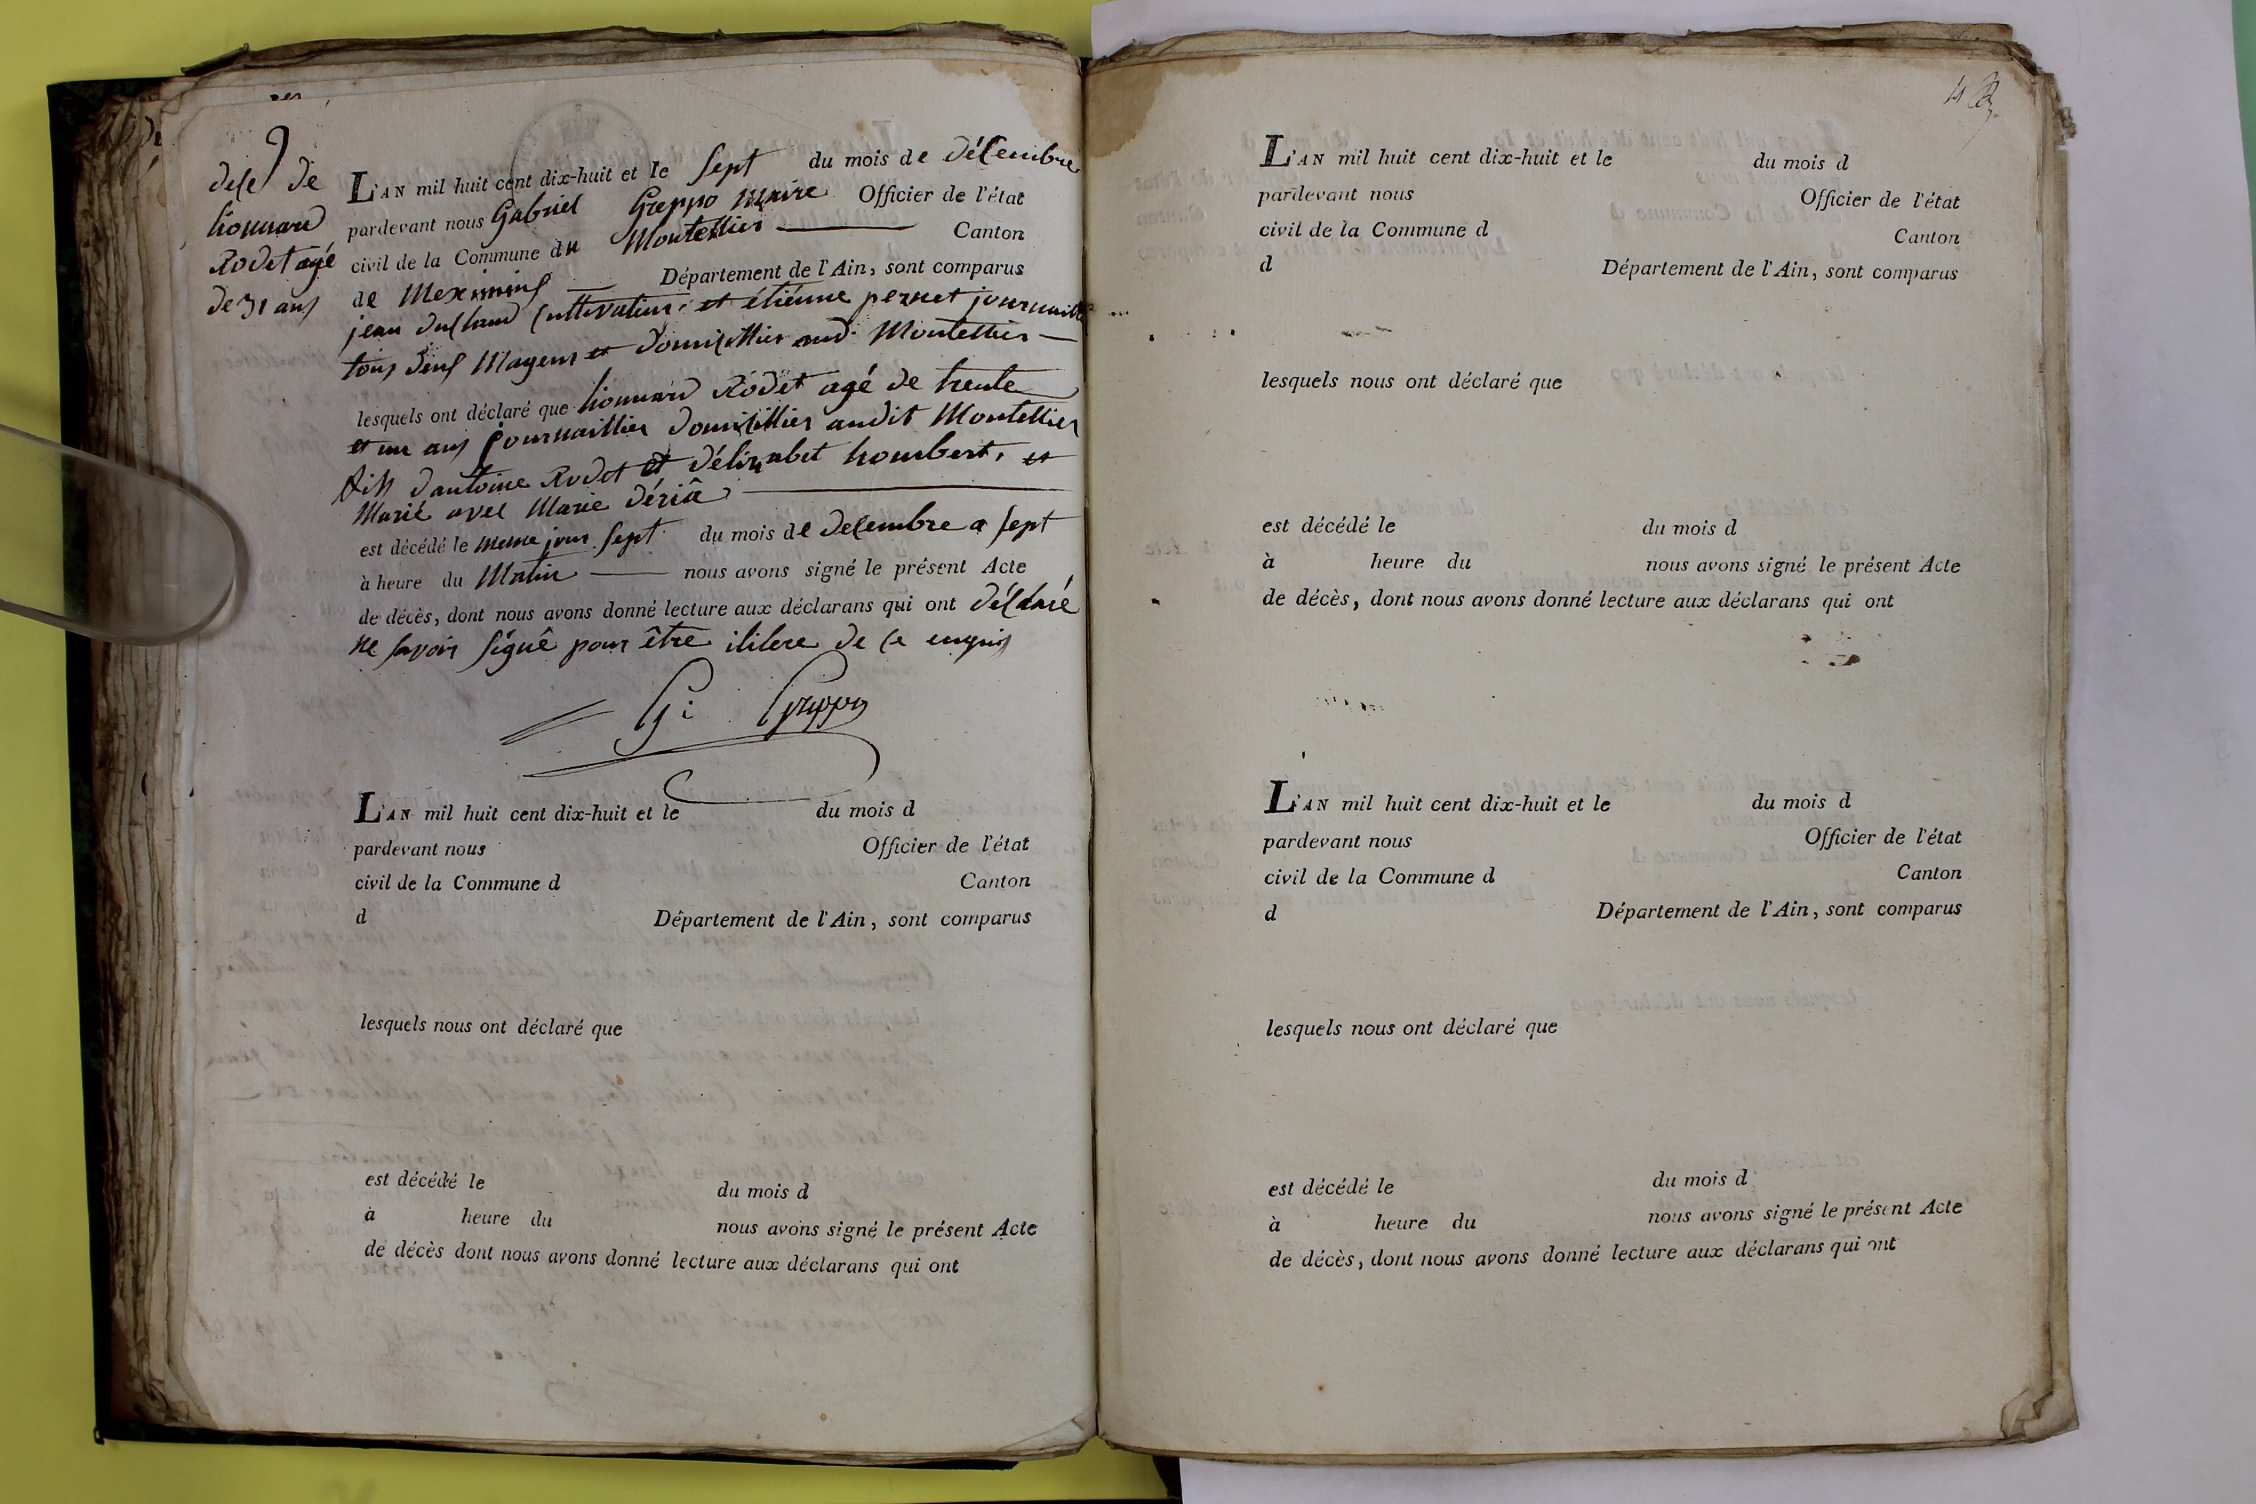 9
dece de
lionnard
Rodet agé
de 31 ans
L'AN mil huit cent dix-huit et le sept du mois de décembre
pardevant nous Gabriel Greppo maire Officier de l'état
civil de la Commune du Montellier Canton
de Meximins Département de l'Ain, sont comparus
jean cultivateur et étiénne pernet journaillie
tous deus Mageur et domicillier aud. Montellier
lesquels ont déclaré que lionnard Rodet agé de trente
et un ans journaillier domicillier audit Montellier
fils d'antoine Rodet et délizabet hombert, et
Marié avec Marie dériâ
est décédé le meme jour sept du mois de decembre a sept
à heure du Matin nous avons signé le présent Acte
de décès, dont nous avons donné lecture aux déclarans qui ont déclaré
ne savoir signé pour être ilitere de ce enquis
G: Greppo
L'AN mil huit cent dix-huit et le du mois d
pardevant nous Officier de l'état
civil de la Commune d Canton
d Département de l'Ain, sont comparus
lesquels nous ont déclaré que
est décédé le du mois d
à heure du nous avons signé le présent Acte
de décès dont nous avons donné lecture aux déclarans qui ont
L'AN mil huit cent dix-huit et le du mois d
pardevant nous Officier de l'état
civil de la Commune d Canton
d Département de l'Ain, sont comparus
lesquels nous ont déclaré que
est décédé le du mois d
à heure du nous avons signé le présent Acte
de décès, dont nous avons donné lecture aux déclarans qui ont
L'AN mil huit cent dix-huit et le du mois d
pardevant nous Officier de l'état
civil de la Commune d Canton
d Département de l'Ain, sont comparus
lesquels nous ont déclaré que
est décédé le du mois d
à heure du nous avons signé le présent Acte
de décès, dont nous avons donné lecture aux déclarans qui ont